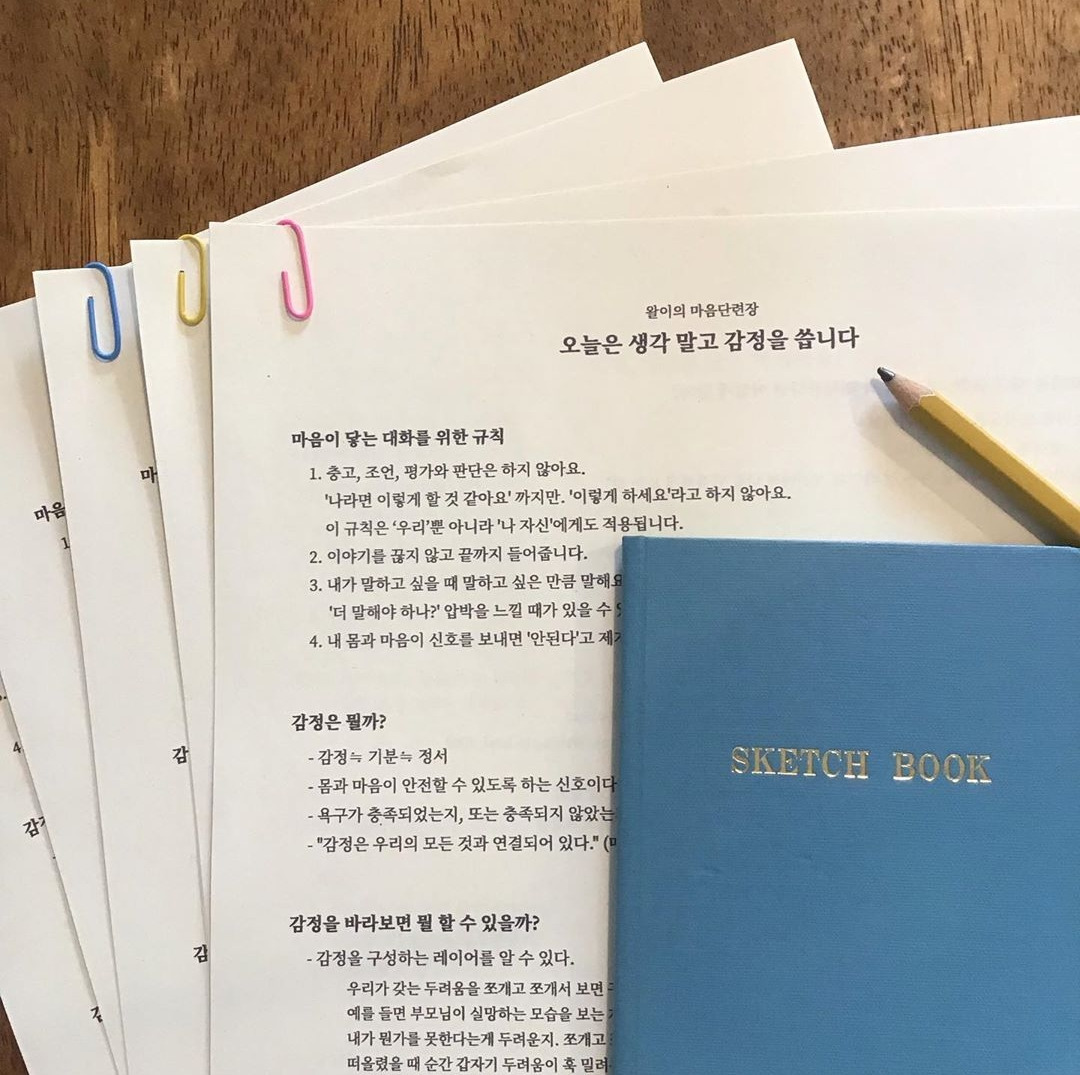 왈이의 마음단련장
오늘은 생각 말고 감정을 씁니다
마음이 닿는 대화를 위한 규칙
1. 충고, 조언, 평가와 판단은 하지 않아요.
'나라면 이렇게 할 것 같아요' 까지만. '이렇게 하세요'라고 하지 않아요.
이 규칙은 '우리'뿐 아니라 '나 자신'에게도 적용됩니다.
2. 이야기를 끊지 않고 끝까지 들어줍니다.
3. 내가 말하고 싶을 때 말하고 싶은 만큼 말해요
'더 말해야 하나?' 압박을 느낄 때가 있을 수
4. 내 몸과 마음이 신호를 보내면 '안된다'고
감정은 뭘까?
- 감정≒ 기분≒ 정서
- 몸과 마음이 안전할 수 있도록 하는 신호이다
- 욕구가 충족되었는지, 또는 충족되지 않았는
- "감정은 우리의 모든 것과 연결되어 있다."
감정을 바라보면 뭘 할 수 있을까?
- 감정을 구성하는 레이어를 알 수 있다.
우리가 갖는 두려움을 쪼개고 쪼개서 보면
예를 들면 부모님이 실망하는 모습을 보는
내가 뭔가를 못한다는게 두려운지. 쪼개고
떠올렸을 때 순간 갑자기 두려움이 훅 밀려
SKETCH BOOK